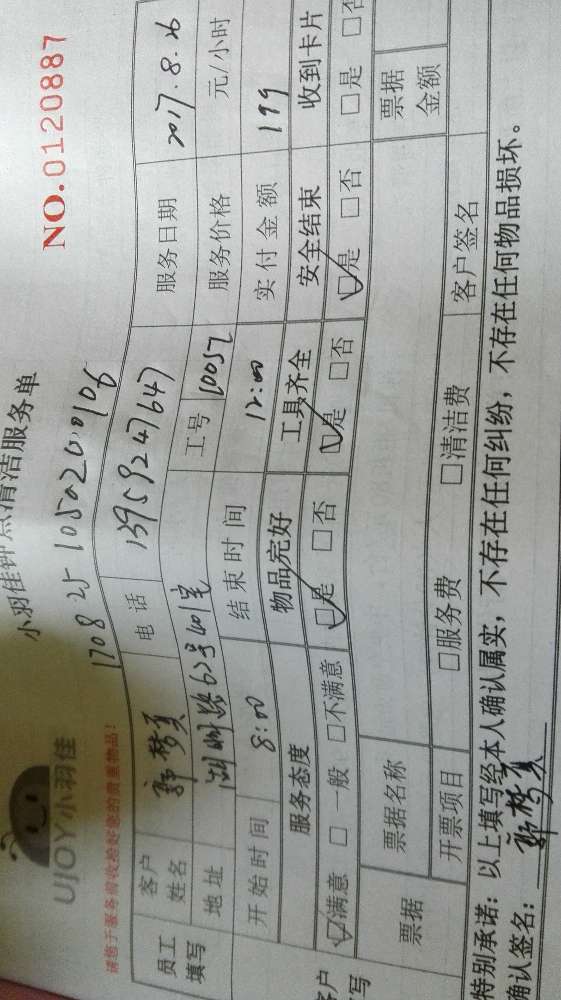 UJOY小羽佳
小羽佳钟点清洁服务单
NO.0120887
请您于服务前收拾好您的贵重物品!
员工填写
客户姓名
电话 13959247647
服务日期 2017.8.26
地址
62号401室
工号 10052
服务价格 元/小时
开始时间 8:00
结束时间 12:00
实付金额 199
服务态度 物品完好 工具齐全 安全结束 收到卡片
☑满意 □一般 □不满意 ☑是 □否 ☑是 □否 ☑是 □否 □是 □否
票据 票据名称 票据金额
开票项目 □服务费 □清洁费 客户签名
特别承诺：以上填写经本人确认属实，不存在任何纠纷，不存在任何物品损坏。
确认签名：